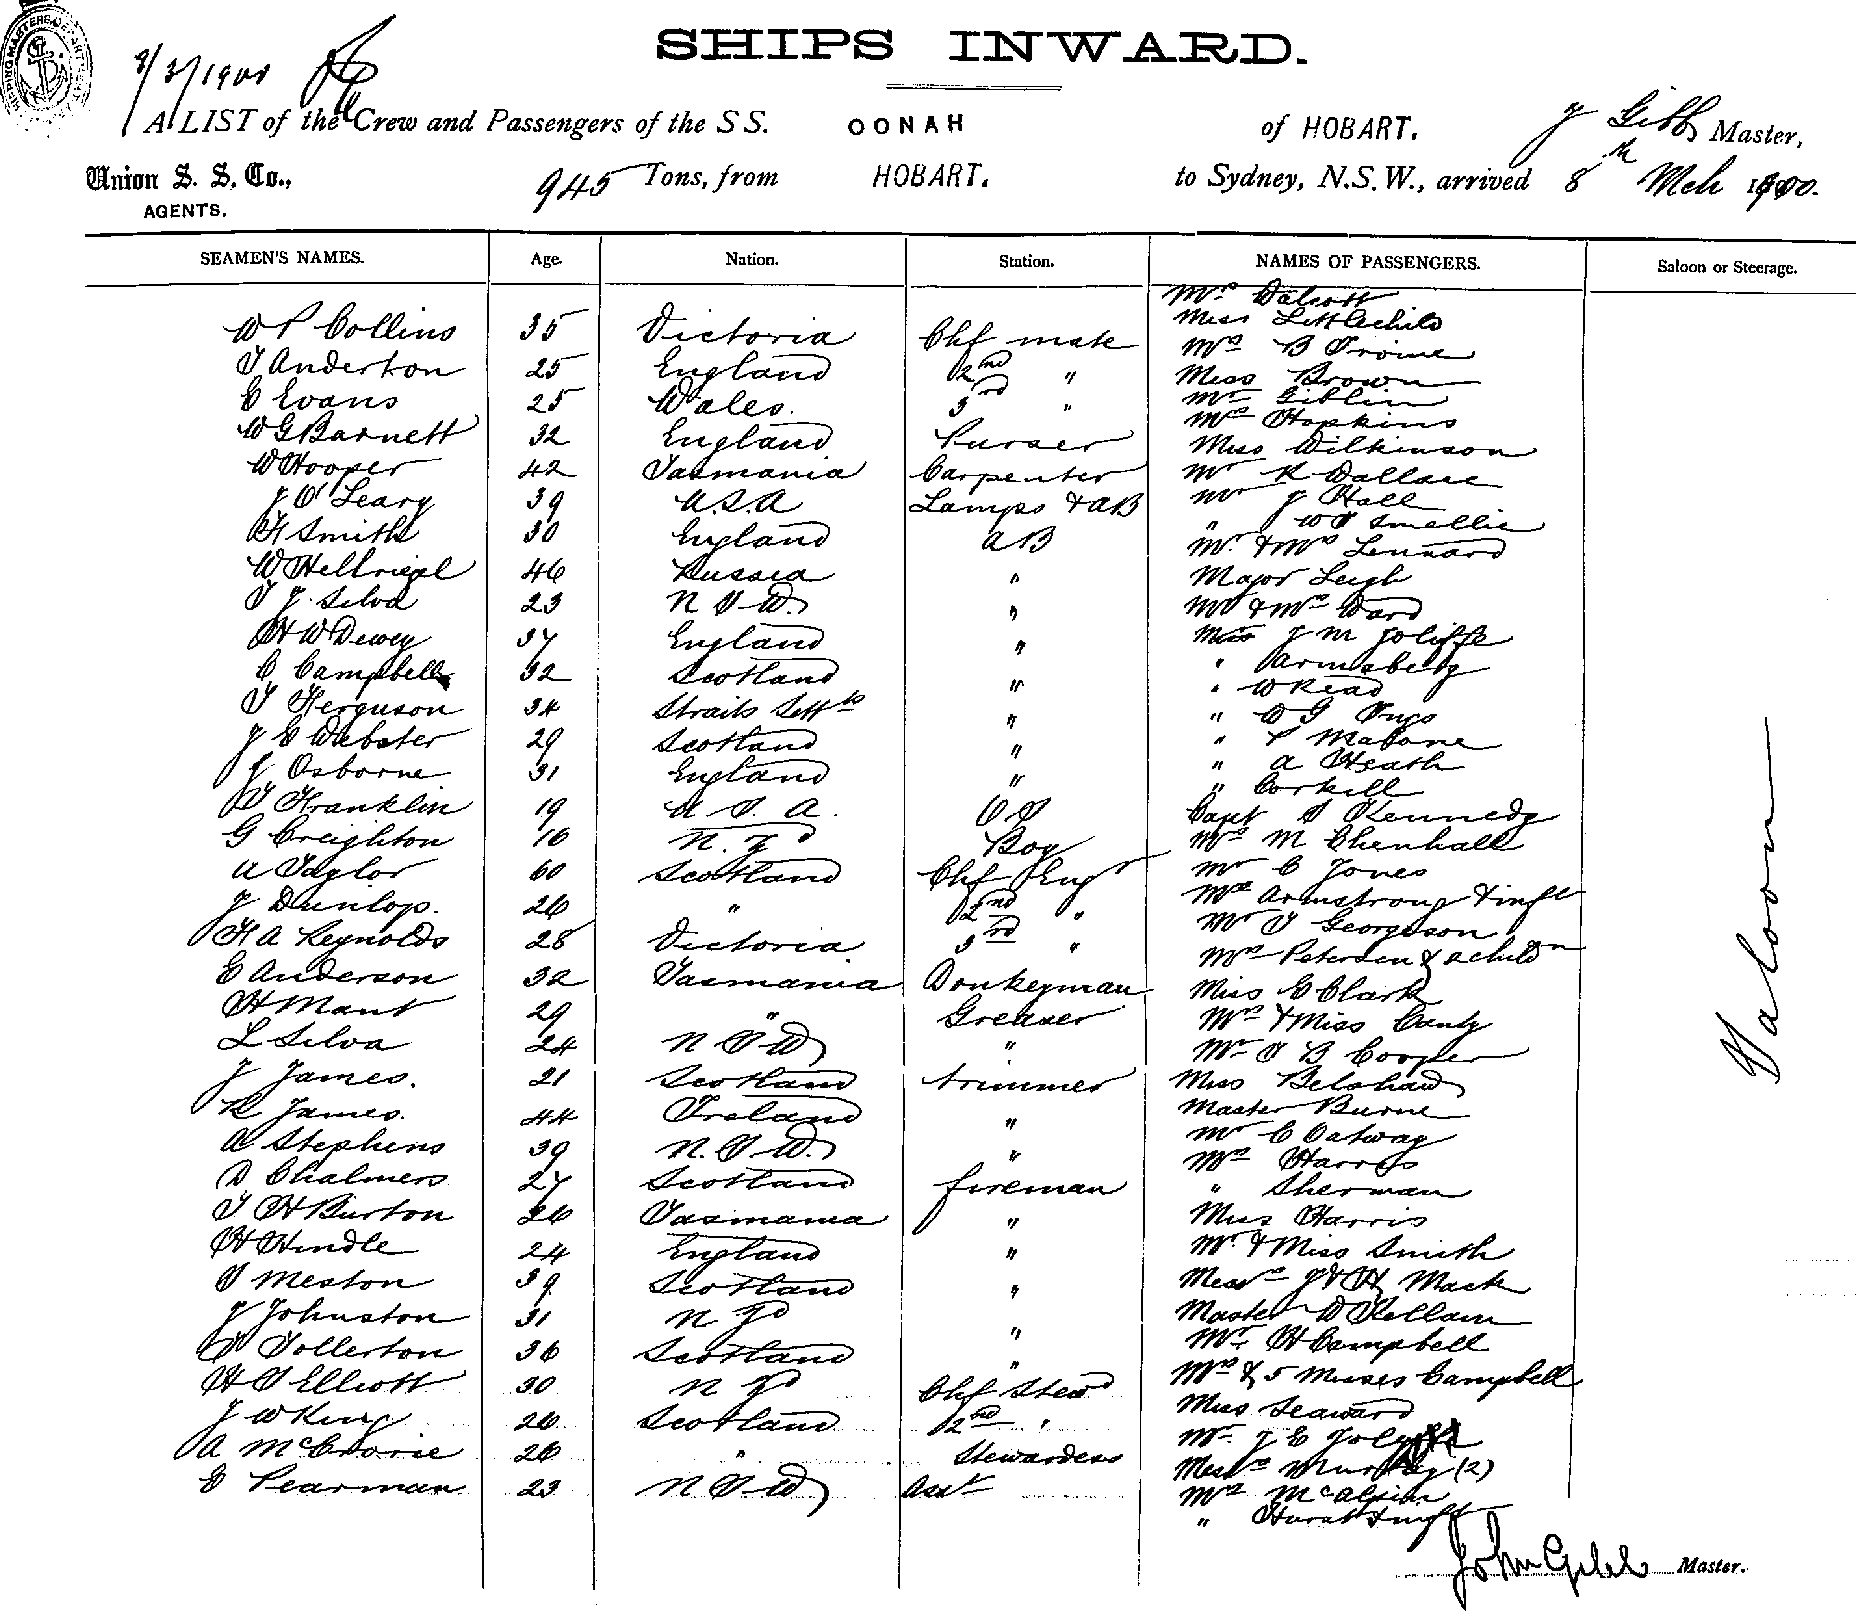 SHIPS INWARD.
8/3/1900
A LIST of the Crew and Passengers of the S S. OONAH of HOBART. J Gibb Master,
Union S. S. Co., 945 Tons, from HOBART. to Sydney, N.S.W., arrived 8th Mch 1900.
AGENTS.
SEAMEN'S NAMES. Age. Nation. Station. NAMES OF PASSENGERS. Saloon or Steerage.
W P Collins 35 Victoria Chf mate
T Anderton 25 England 2nd "
C Evans 25 Wales. 3rd "
W G Barnett 32 England Purser
W Hooper 42 Tasmania Carpenter
J O'Leary 39 U.S.A Lamps & AB
H Smith 30 England AB
W Hellriegel 46 Russia "
T J. Silva 23 N S W. "
H W Dewey 37 England "
C Campbell 32 Scotland "
T Ferguson 34 Straits Settts "
J C Webster 29 Scotland "
J Osborne 31 England "
T Franklin 19 U S. A. OS
G Creighton 16 N. Zd Boy
A Taylor 60 Scotland Chf Engr
J Dunlop. 26 " 2nd "
H A Reynolds 28 Victoria 3rd "
E Anderson 32 Tasmania Donkeyman
H Mant 29 " Greaser
L Silva 24 N S W "
J James. 21 Scotland trimmer
R James. 44 Ireland "
A Stephens 39 N. S W. "
D Chalmers 27 Scotland fireman
T H Burton 26 Tasmania "
H Hindle 24 England "
T Meston 39 Scotland "
J Johnston 31 N Zd "
D Tollerton 36 Scotland "
H S Elliott 30 N Zd Chf Stewd
J W King 26 Scotland 2nd "
A McCrorie 26 " Stewardess
E Pearman 23 N S W Asst
Miss Littlechild
Mrs B
Miss Brown
Mr Giblin
Mrs Hopkins
Miss Wilkinson
Mr R Wallace
Mr J Hall
" W T Smellie
Mr. & Mrs Lennard
Major Leigh
Mr & Mrs Ward
Miss J M Joliffe
" Armsberg
" W Read
" W G
" P Malone
" A Heath
" Corkill
Capt S Kennedy
Mrs M Chenhall
Mr C Jones
Mrs Armstrong & inft
Mr T Georgeson
Mrs Petersen & 2 childn
Miss E Clark
Mrs & Miss Canty
Mr T B Cooper
Miss Belshaw
Master Burne
Mr C Oatway
Mrs Harris
" Sherman
Miss Harris
Mr. & Miss Smith
Messrs J & H Mack
Master W Kellam
Mr. H Campbell
Mrs & 5 Misses Campbell
Miss Seaward
Mr. J E
Messrs Murray (2)
Mrs McAlpin
" Hurst & inft
Saloon
John Gibb Master.